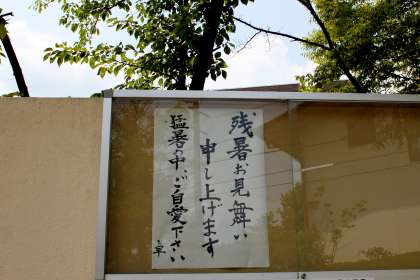 残暑お見舞い
申し上げます
猛暑の中、ご自愛下さい